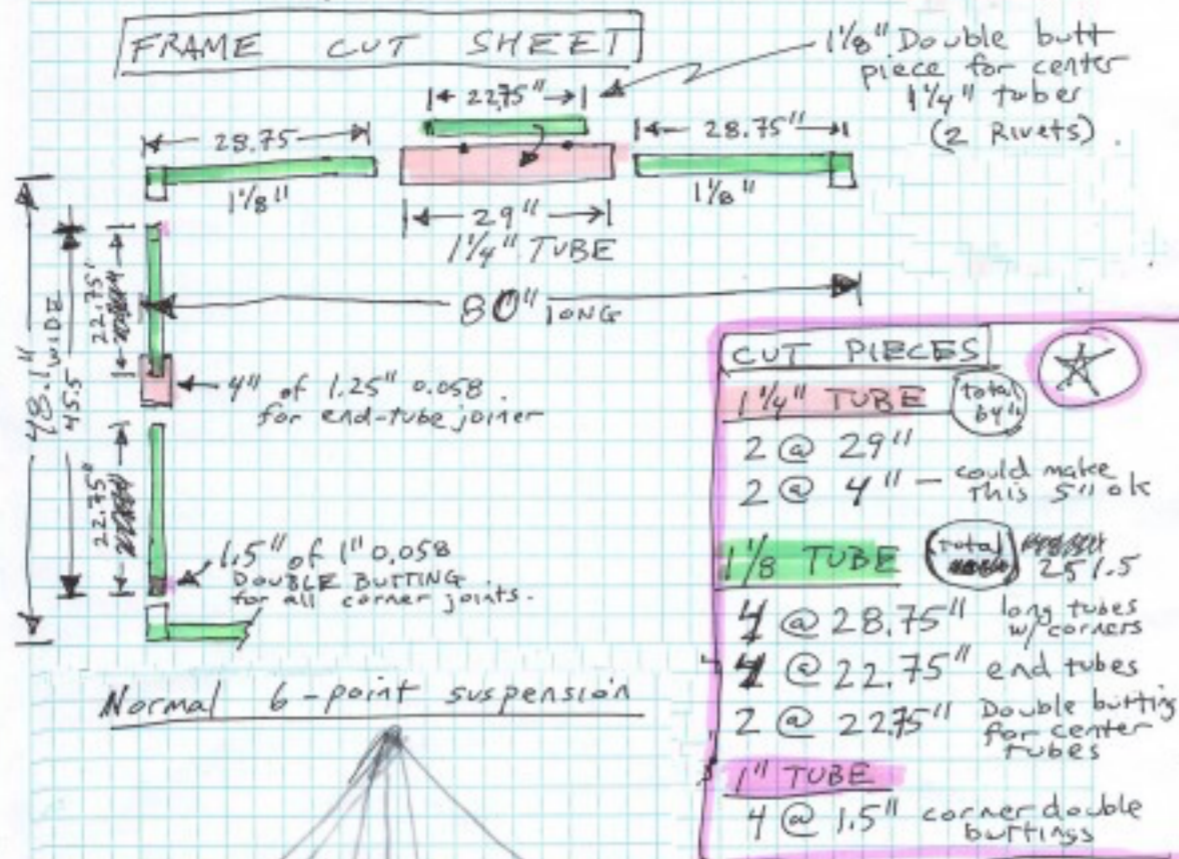 FRAME CUT SHEET
1 1/8" Double butt
piece for center
1 1/4" tubes
(2 Rivets)
22.75"
28.75
28.75"
1 1/8"
1 1/8"
29"
1 1/4" TUBE
80" LONG
48.1" WIDE
45.5
22.75"
4" of 1.25" 0.058
for end-tube joiner
22.75"
1.5" of 1" 0.058
DOUBLE BUTTING
for all corner joints.
Normal 6-point suspension
CUT PIECES
1 1/4" TUBE
total
2 @ 29"
2 @ 4" — could make
this 5" ok
1 1/8 TUBE
Total
251.5
4 @ 28.75" long tubes
w/ corners
4 @ 22.75" end tubes
2 @ 22.75" Double butting
for center
tubes
1" TUBE
4 @ 1.5" corner double
buttings